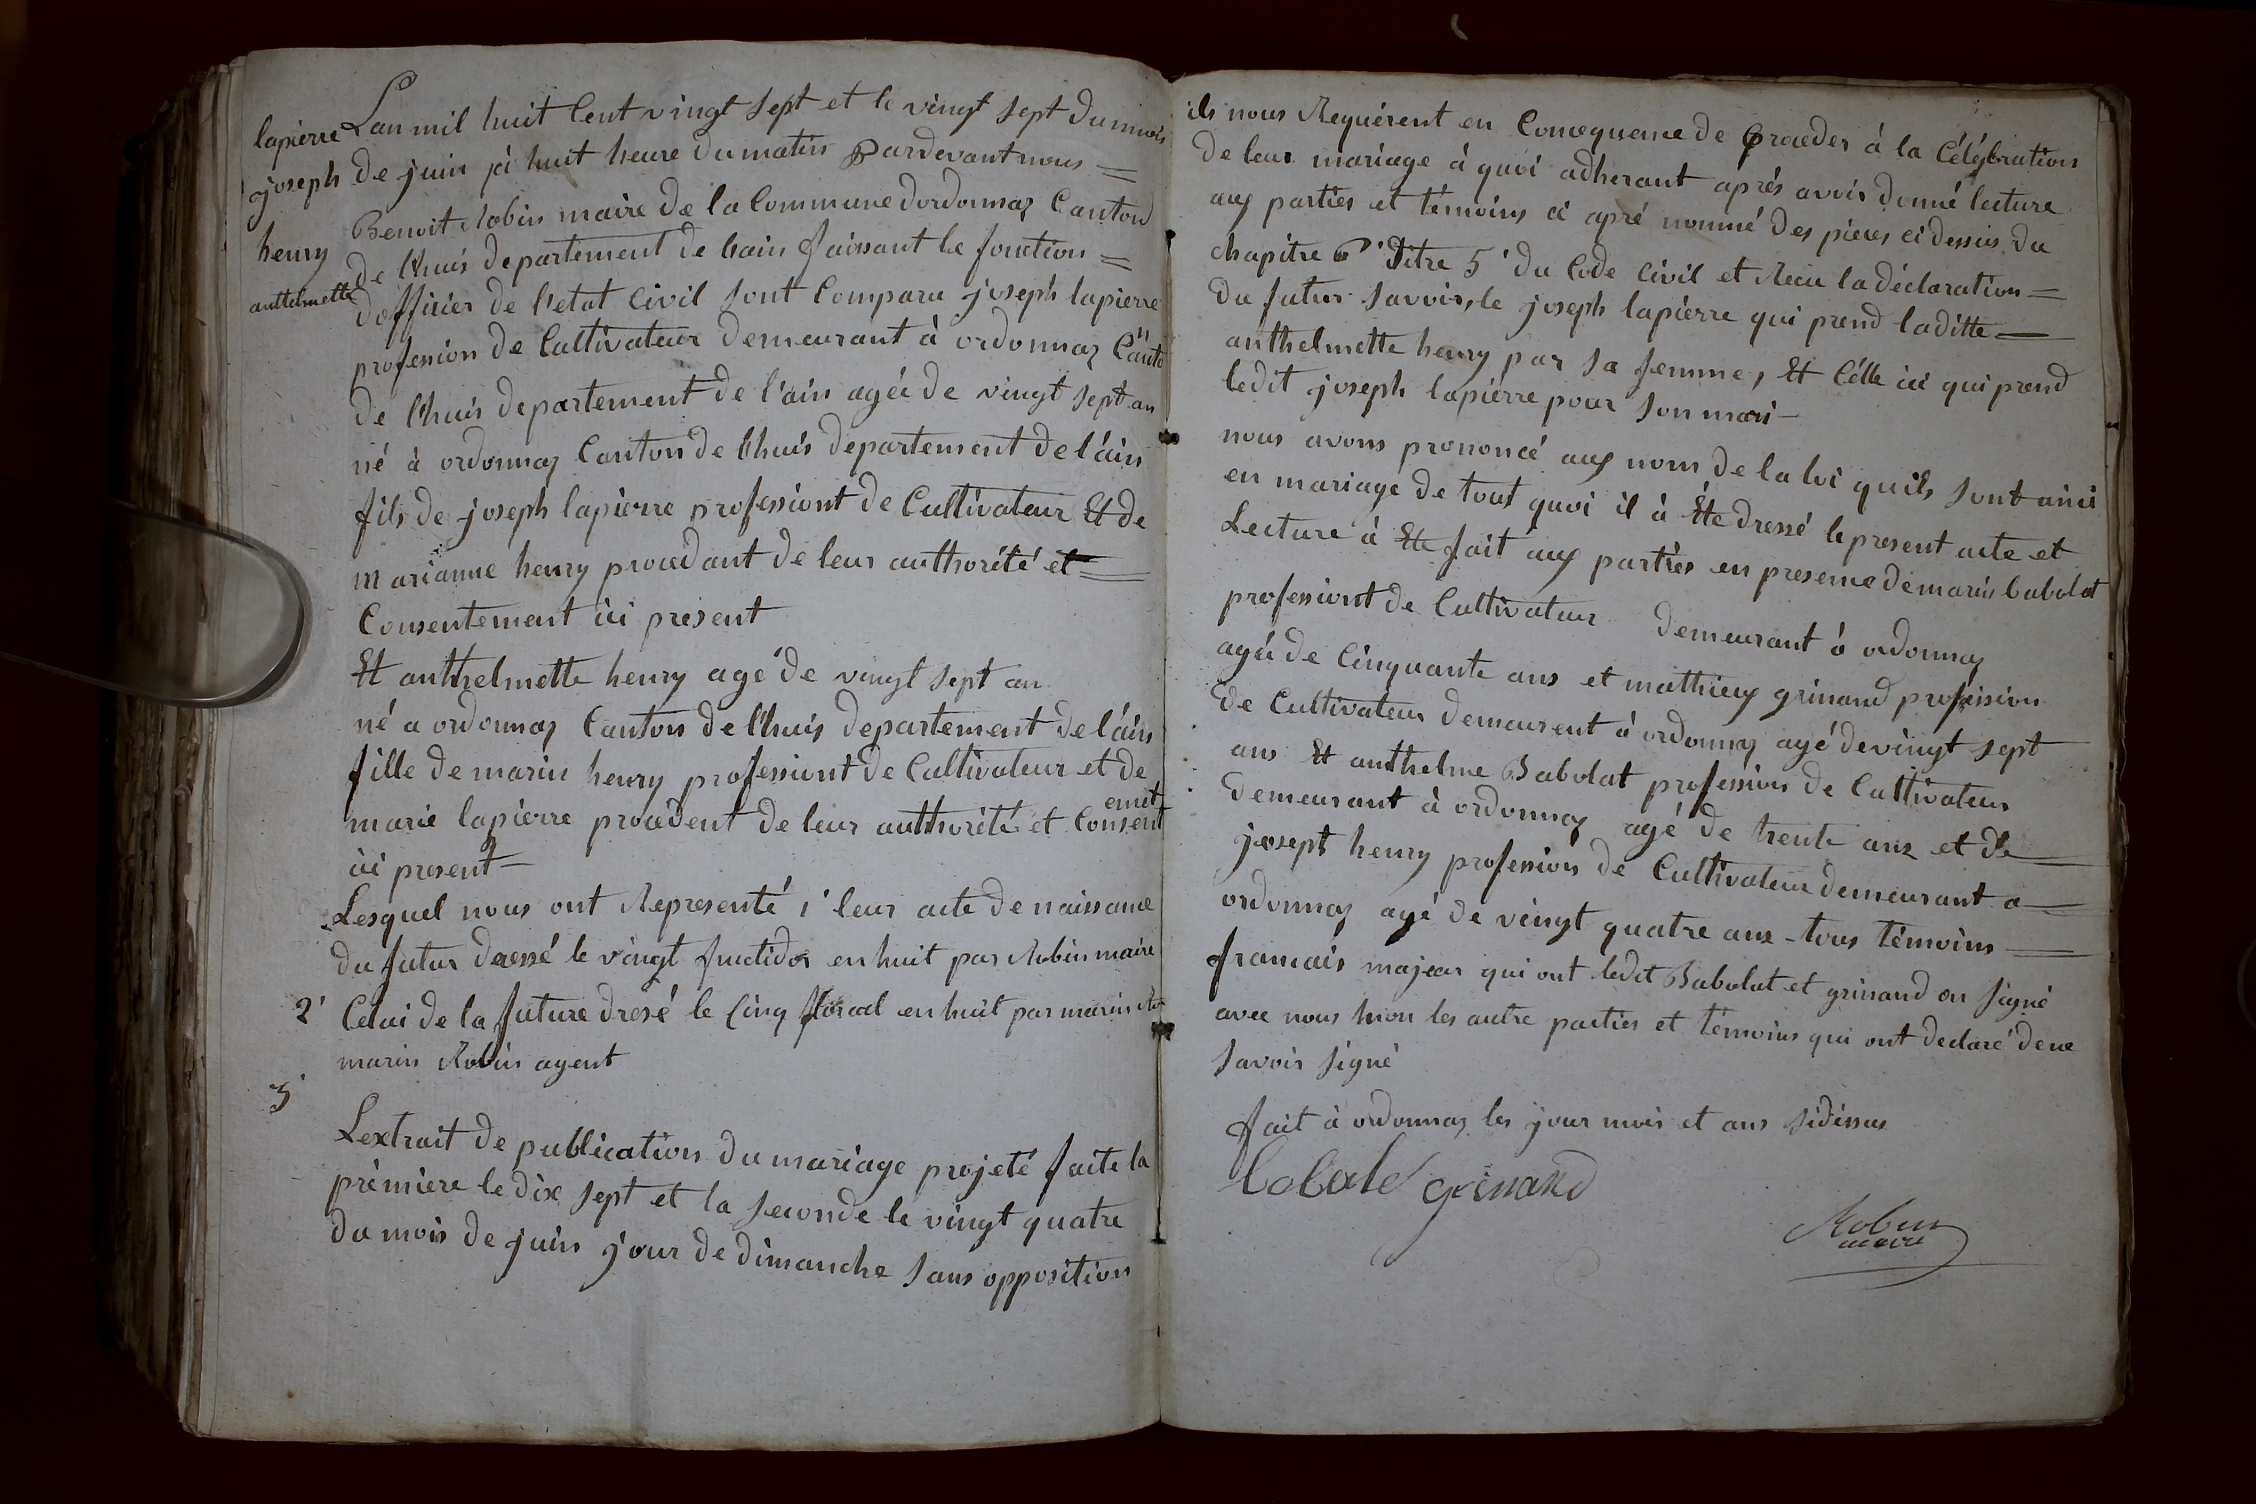 lapierre
joseph
henry
anthelmette
Lan mil huit Cent vingt sept et le vingt sept du mois
de juin à huit heure du matin Pardevant nous =
Benoit Robin maire de la Commune dordonnaz Canton
de lhuis departement de lain faissant la fonction =
dofficier de l'etat Civil sont Comparu joseph lapierre
profession de Cultivateur demeurant à ordonnaz Canton
de lhuis departement de l'ain agée de vingt sept an
né à ordonnaz Canton de lhuis departement de l'ain
fils de joseph lapierre professiont de Cultivateur Et de
marianne henry procedant de leur authorité et =
Consentement ici present
Et anthelmette henry age de vingt sept an
né a ordonnaz Canton de lhuis departement de l'ain
fille de marin henry professiont de Cultivateur et de
marie lapierre procedent de leur authorité et Consentemet
ici present —
Lesquel nous ont Representé 1° leur acte de naissance
du futur dressé le vingt fructidor en huit par Robin maire
2° Celui de la future dresé le Cinq floreal en huit par marin Ro
marin Robin agent
3°
Lextrait de publication du mariage projeté faite la
première le dix sept et la seconde le vingt quatre
du mois de juin jour de dimanche sans opposition
ils nous Requèrent en Consequence de proceder à la Célébration
de leur mariage à quoi adherant aprés avoir donné lecture
aux parties et témoins ci apré nommé des pièces ci dessus du
chapitre 6° titre 5° du Code Civil et Recu la déclaration =
du futur savoir, le joseph lapierre qui prend laditte —
anthelmette henry par sa femme, Et Célle ici qui prend
ledit joseph lapierre pour son mari —
nous avons prononcé aux nom de la loi quils sont ainci
en mariage de tout quoi il à Éte dressé le present acte et
Lecture à Ete fait aux partiés en presence de marin babolat
professiont de Cultivateur demeurant à ordonnaz
agée de Cinquante ans et mathieux grinand profession
de Cultivateur demeurent à ordonnaz agé de vingt sept
ans Et anthelme Babolat profession de Cultivateur
demeurant à ordonnaz agé de trente ans et de —
joseph henry profession de Cultivateur demeurant a —
ordonnaz agé de vingt quatre ans - tous témoins —
francais majeur qui ont ledit Babolat et grinand on signé
avec nous hion les autre parties et témoins qui ont declaré dene
savoir signé
fait à ordonnaz les jour mois et ans sidissus
babolat grinand
Robin
maire